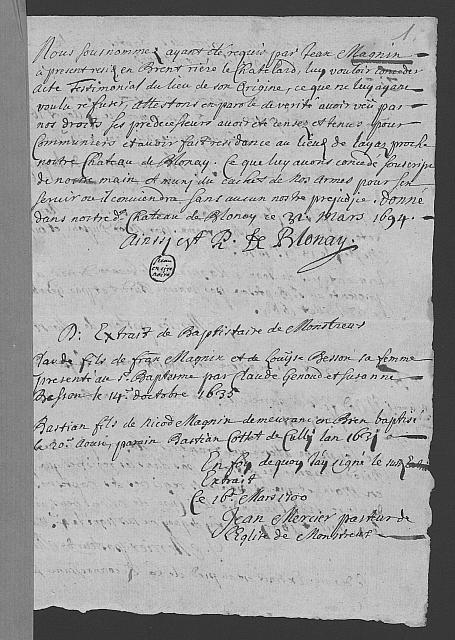 1
Nous sousnommez ayant été requis par Jean Magnin
a present resid. en Brent riére le Chatelard, luy vouloir conceder
acte Testimonial du lieu de son Origine, ce que ne luy ayant
voulu refuser, attestons en parole de verité avoir veu par
nos droits ses predecesseurs avoir été censez et tenus pour
Communiers et avoir fait residance au lieu de Layaz proche
nostre Chateau de Blonay. Ce que luy avons concedé souscript
de nostre main et muni du cachet de nos Armes pour s'en
servir ou il conviendra sans aucun nostre prejudice. donné
dans nostre d. Chateau de Blonay ce 31e mars 1694.
Ainsi est P. De Blonay.
Sceau
en cire
noire
D: Extrait de Baptistaire de Monstreux
Claude fils de fran Magnin et de Louyse Besson sa femme
presenté au St Baptesme par Claude Genoud et Susanne
Besson le 14e doctobre 1635
Bastian fils de Nicod Magnin demeurant en Bren baptisé
le 20e Aoust, parain Bastian Cottet de Cully lan 1631
En foy de quoy j'ay signé le
Extrait
Ce 16e Mars 1700
Jean Mercier pasteur de
l'Eglise de Monstreux